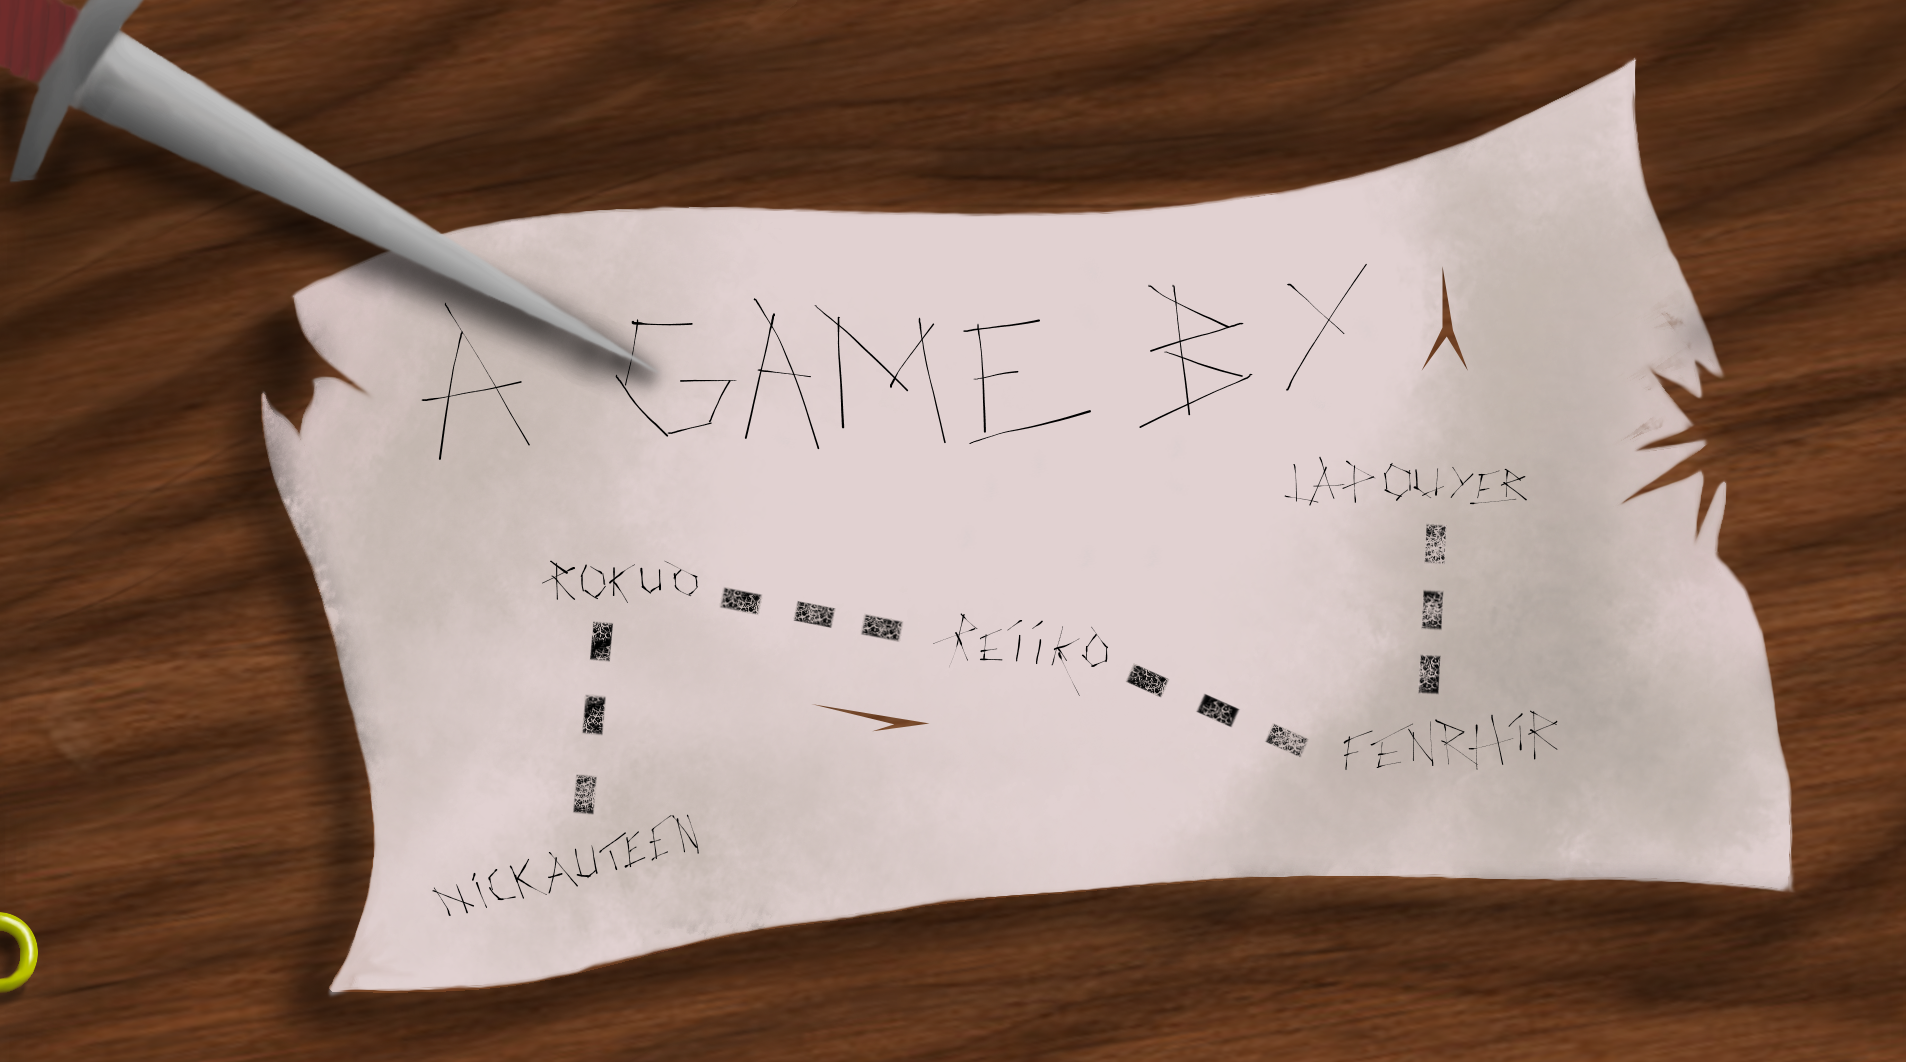 A GAME BY
LAPOUYER
ROKUO
REIIKO
FENRHIR
NICKAUTEEN